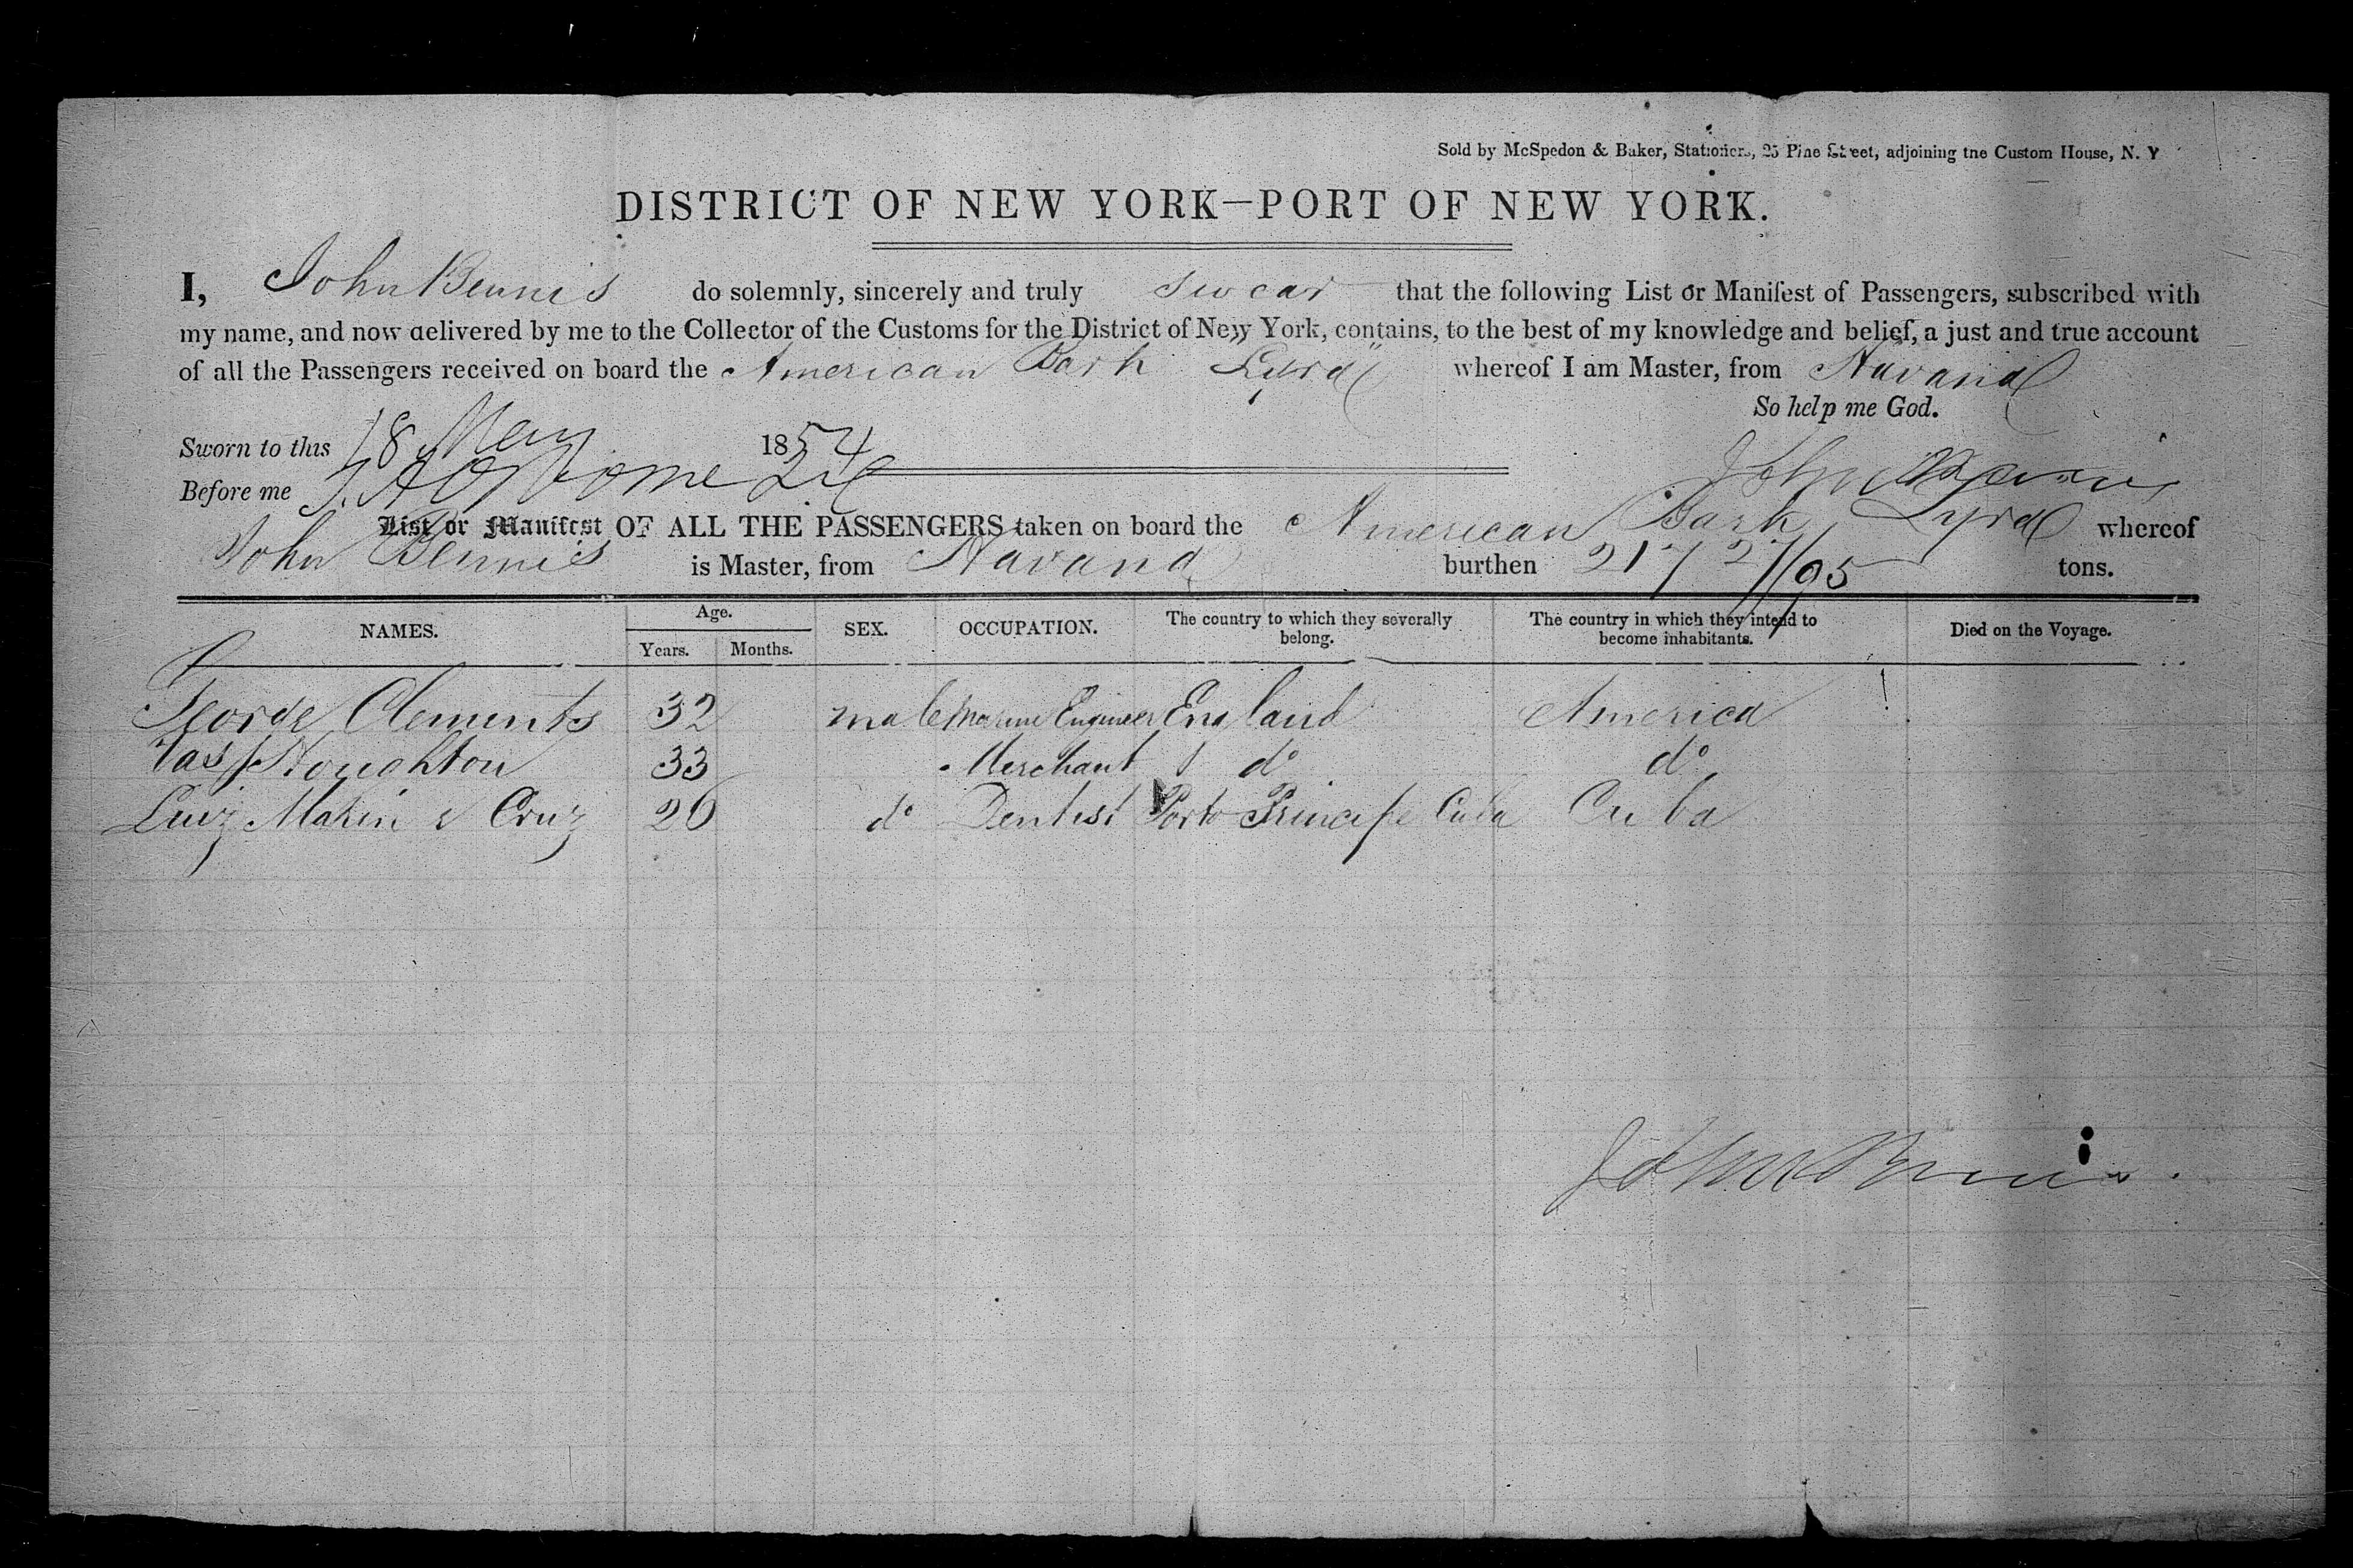 Sold by McSpedon & Baker, Stationers, 25 Pine Street, adjoining the Custom House, N. Y
DISTRICT OF NEW YORK—PORT OF NEW YORK.
I, John Bennis do solemnly, sincerely and truly swear that the following List or Manifest of Passengers, subscribed with
my name, and now delivered by me to the Collector of the Customs for the District of New York, contains, to the best of my knowledge and belief, a just and true account
of all the Passengers received on board the American Bark "Lyra" whereof I am Master, from Havana
So help me God.
Sworn to this 18 May 1854
Before me John Bennis
List or Manifest OF ALL THE PASSENGERS taken on board the American Bark Lyra whereof
John Bennis is Master, from Havana burthen 217 /95 tons.
NAMES. Age. Years. Months. SEX. OCCUPATION. The country to which they severally belong. The country in which they intend to become inhabitants. Died on the Voyage.
George Clements 32 male Marine Engineer England America
Jas Houghton 33 Merchant do do
Luiz Marin & Cruz 26 do Dentist Porto Principe Cuba Cuba
John Bennis